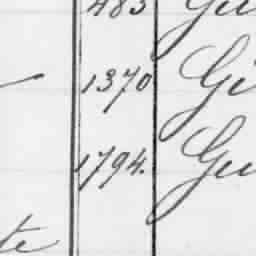 483 Gu
1370 Gi
1794. Gu
te